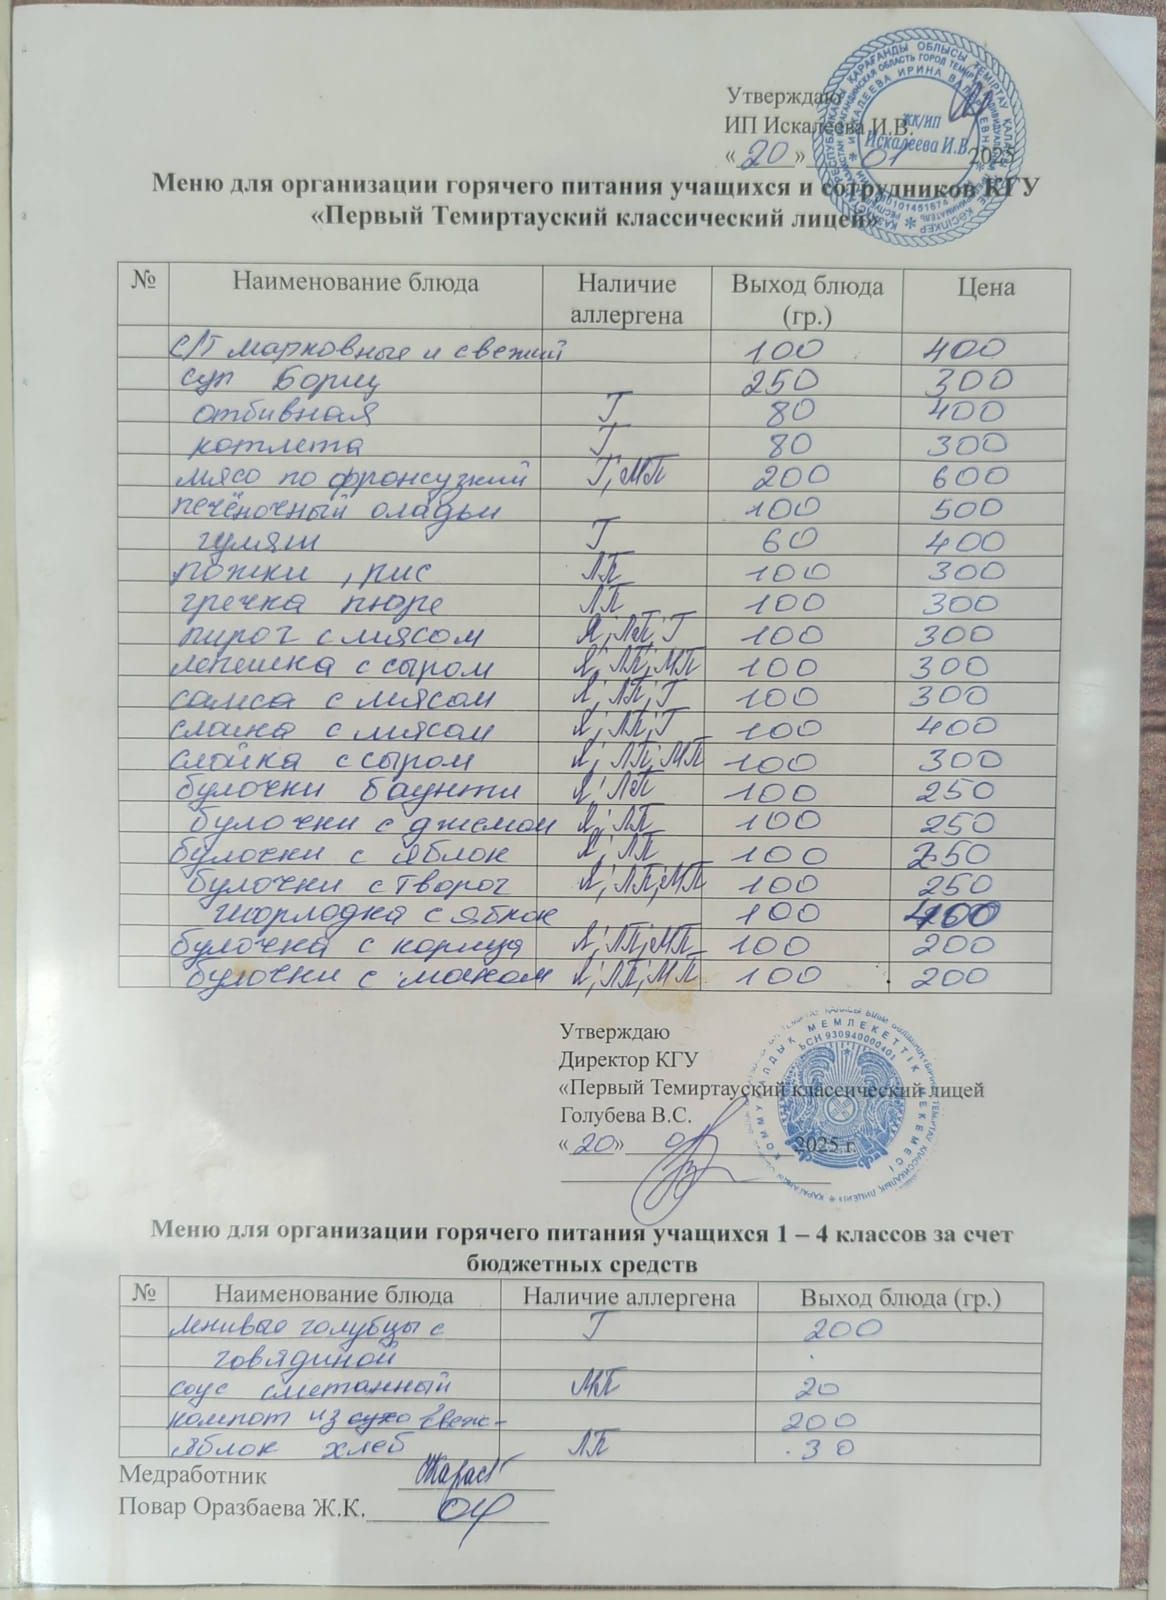 Утверждаю
ИП Искалеева И.В.
«20» 01 2025
ЖК/ИП
Искалеева И.В.
Меню для организации горячего питания учащихся и сотрудников КГУ
«Первый Темиртауский классический лицей»
№ Наименование блюда Наличие аллергена Выход блюда (гр.) Цена
С/Т марковные и свежий 100 400
суп Борщ 250 300
отбивная Г 80 400
котлета Г 80 300
мясо по франсузкий Г; МП 200 600
печёночный оладьи 100 500
гуляш Г 60 400
рожки, рис ЛП 100 300
гречка пюре ЛП 100 300
пирог с мясом Я; ЛП; Г 100 300
лепешка с сыром Я; ЛП; МП 100 300
самса с мясом Я; ЛП; Г 100 300
слаика с мясом Я; ЛП; Г 100 400
слойка с сыром Я; ЛП; МП 100 300
булочки баунти Я; ЛП 100 250
булочки с джемом Я; ЛП 100 250
булочки с яблок Я; ЛП 100 250
булочки с творог Я; ЛП; МП 100 250
шорлодка с яблок 100 400
булочка с корица Я; ЛП; МП 100 200
булочки с маком Я; ЛП; МП 100 200
Утверждаю
Директор КГУ
«Первый Темиртауский классический лицей
Голубева В.С.
«20» 01 2025 г.
Меню для организации горячего питания учащихся 1 – 4 классов за счет
бюджетных средств
№ Наименование блюда Наличие аллергена Выход блюда (гр.)
ленивые голубцы с Г 200
говядиной
соус сметанный МП 20
компот из свеж- 200
яблок хлеб ЛП 30
Медработник
Повар Оразбаева Ж.К.